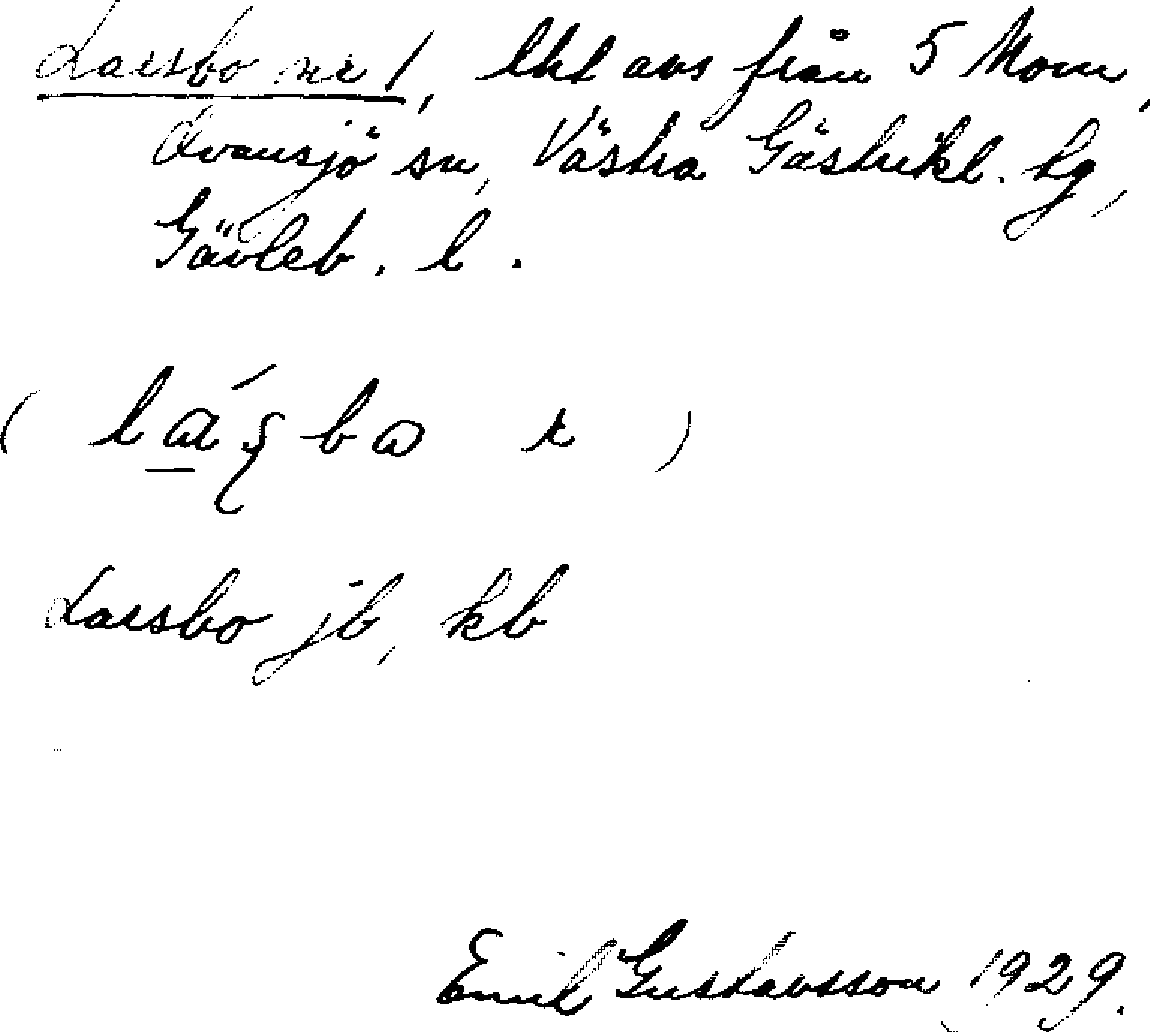 Larsbo nr 1, lht avs från 5 Mom,
Ovansjö sn, Västra Gästrikl. tg,
Gävleb. l.
( lɑ̱́ʂbɷ r )
Larsbo jb, kb
Emil Gustavsson 1929.